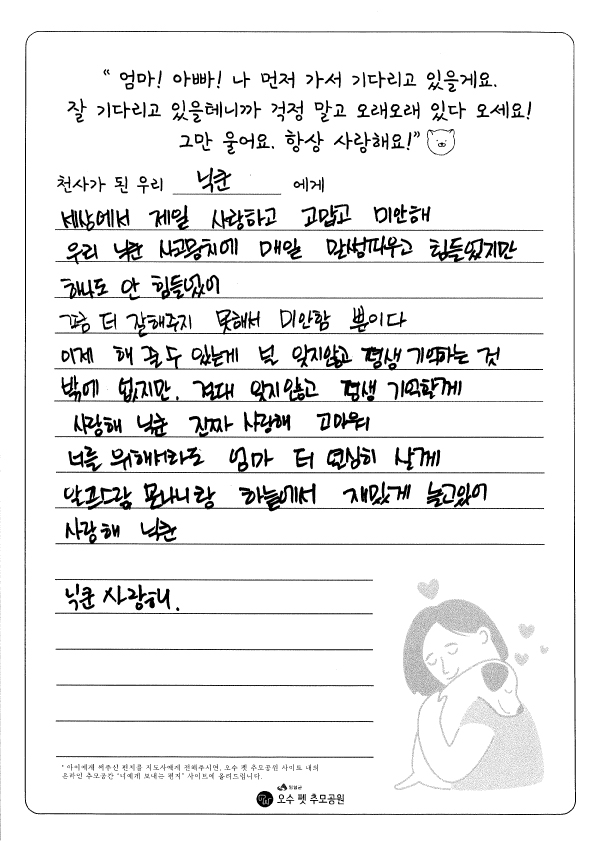 “ 엄마! 아빠! 나 먼저 가서 기다리고 있을게요.
잘 기다리고 있을테니까 걱정 말고 오래오래 있다 오세요!
그만 울어요. 항상 사랑해요!”
천사가 된 우리 닉쿤 에게
세상에서 제일 사랑하고 고맙고 미안해
우리 닉쿤 사고뭉치에 매일 말썽피우고 힘들었지만
하나도 안 힘들었어
좀 더 잘해주지 못해서 미안함 뿐이다
이제 해줄수 있는게 널 잊지않고 평생 기억하는 것
밖에 없지만. 절대 잊지않고 평생 기억할게
사랑해 닉쿤 진짜 사랑해 고마워
너를 위해서라도 엄마 더 열심히 살게
몬나니랑 하늘에서 재밌게 놀고있어
사랑해 닉쿤
닉쿤 사랑해.
* 아이에게 써주신 편지를 지도사에게 전해주시면, 오수 펫 추모공원 사이트 내의
온라인 추모공간 "너에게 보내는 편지" 사이트에 올려드립니다.
임실군
오수 펫 추모공원